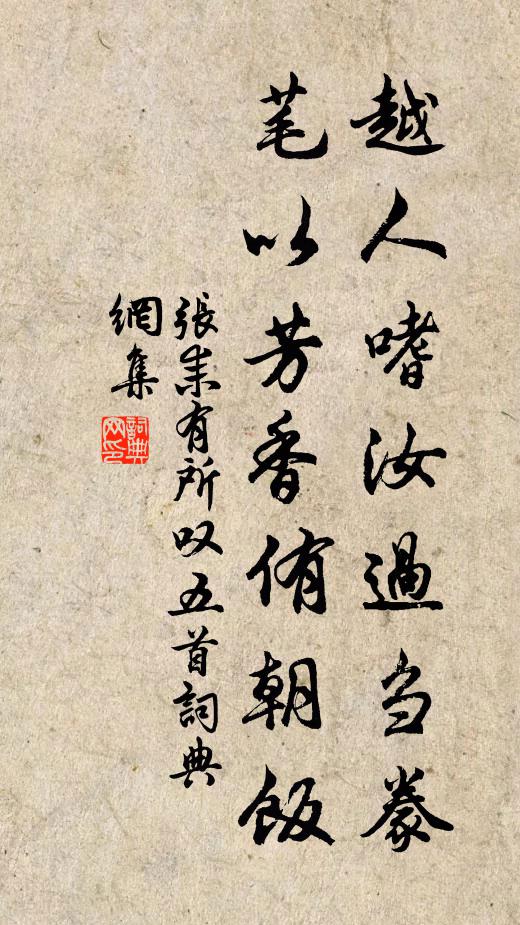 越人嗜汝過刍豢
芼以芳香侑朝飯
張耒有所叹五首詞典
網集
詞典
网印